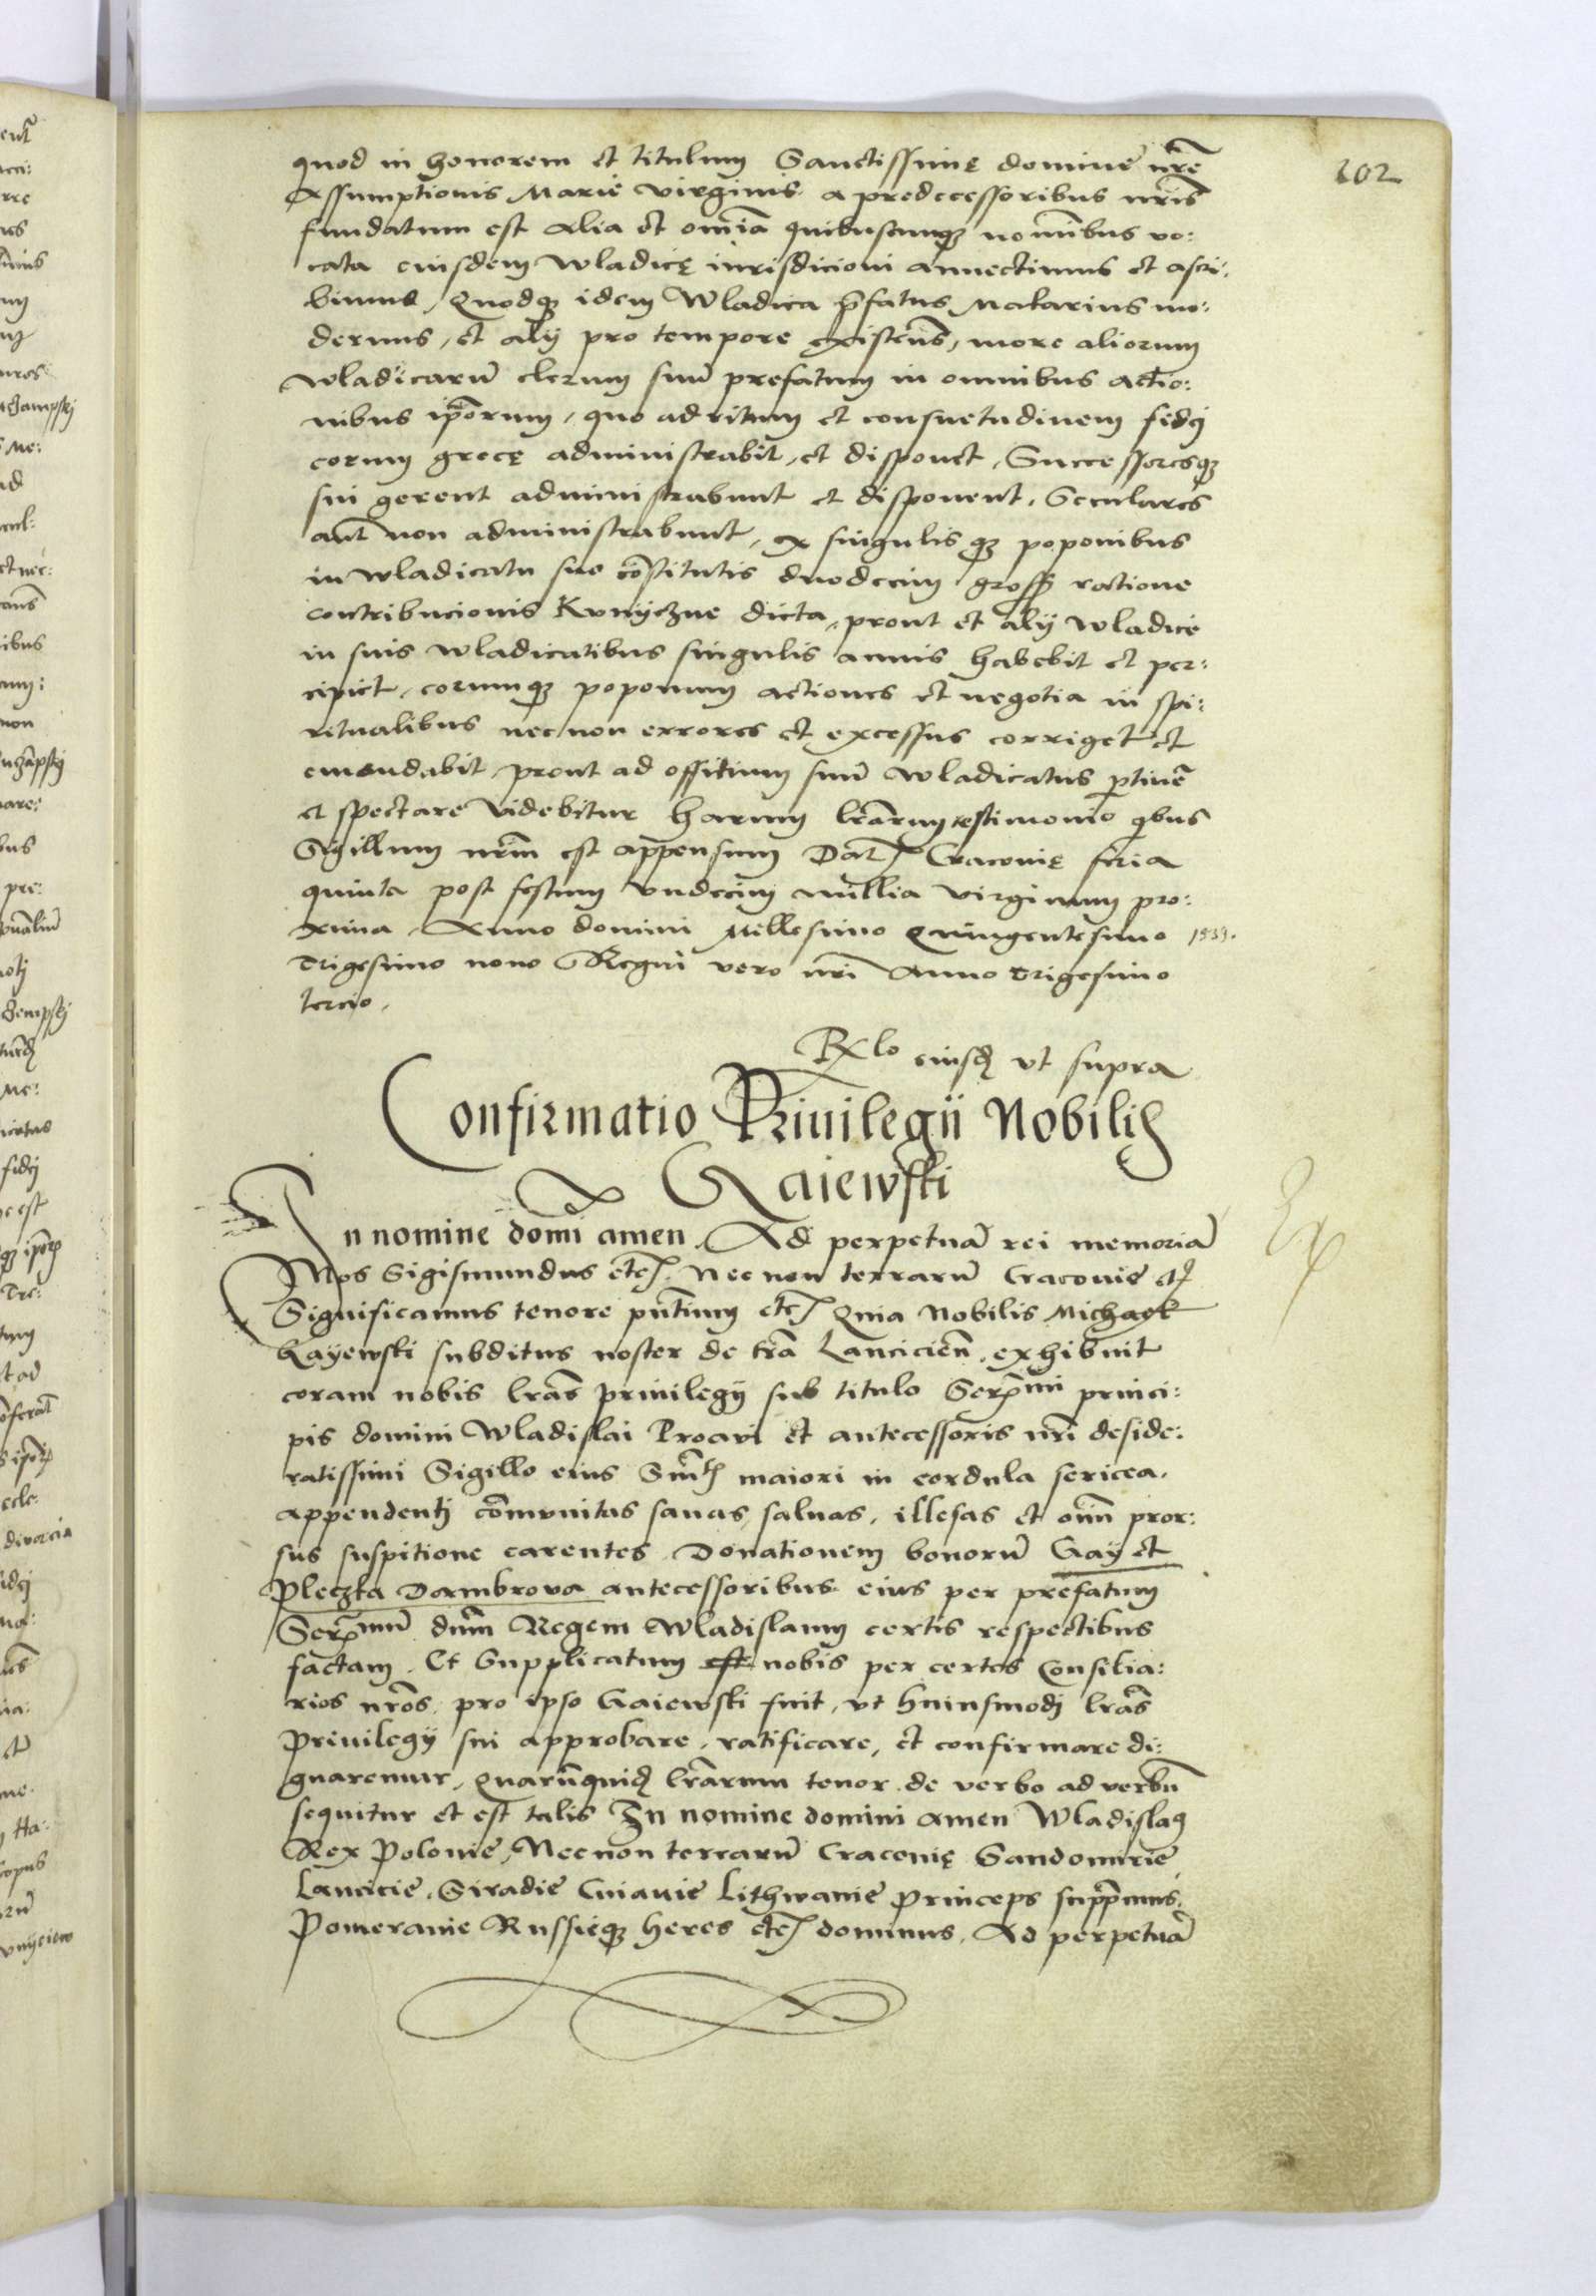 102
quod in honorem et titulum Sanctissimę dominę nr̃e
Assumptionis Marie virginis a predecessoribus nr̃is
fundatum est Alia et om̃ia quibuscunqȝ nomĩbus vo:
cata eiusdem Wladicę iurisdicioni annectimus et ascri:
bimus, Quodqȝ idem Wladica p̃fatus Makarius mo:
dernus, et alij pro tempore existen̄s, more aliorum
wladicarũ clerum suũ prefatum in omnibus actio:
nibus ip̃orum, quo ad ritum et consuetudinem fidej
eorum grecę administrabit, et disponet, Successoresqȝ
sui gerent administrabunt et disponent, Seculares
aut̃ non administrabunt, ex singulis qȝ poponibus
in wladicatu suo cõstitutis duodecim gross ratione
contribucionis Kunyczne dicta, prout et alij Wladice
in suis wladicatibus singulis annis habebit et per:
cipiet, eorumqȝ poponum actiones et negotia in spi:
ritualibus nec non errores et excessus corriget et
emendabit, prout ad offitium suũ wladicatus ptinẽ
et spectare videbitur harum lr̃arum testimonio qbus
Sigillum nr̃m est appensum Dat̃ Cracovię feria
quinta post festum vndecim millia virginum pro:
xima, Anno domini Millesimo Quingentesimo 1539.
Trigesimo nono Regni vero nr̃i Anno trigesimo
tercio.
Rx lo eiusđ vt supra
Confirmatio Priuilegii Nobilis
Gaiewski
In nomine domĩ amen. Ad perpetuã rei memoriã
Nos Sigismundus etc̃ Nec non terrarũ Cracovie etc̃
Significamus tenore pñtium etc̃ Quia Nobilis Michael
Gayewski subditus noster de tr̃a Lancicieñ. exhibuit
coram nobis lr̃as priuilegij sub titulo Serẽmi princi:
pis domini Wladislai Proavi et antecessoris nr̃i deside:
ratissimi Sigillo eius maiori in cordula sericea,
appendentj cõmunitas sanas, saluas, illesas et om̃i pror:
sus suspitione carentes, Donationem bonorũ Gay et
Pleczka Dambrova antecessoribus eius per prefatum
Serẽmũ dñm Regem Wladislaum certis respectibus
factam. Et Supplicatum est nobis per certos Consilia:
rios nr̃os, pro ipso Gaiewski fuit, vt huiusmodj lr̃as
Priuilegij sui approbare, ratificare, et confirmare di:
gnaremur, Quarũquiđ lr̃arum tenor de verbo ad verbũ
sequitur et est talis In nomine domini amen Wladislaꝯ
Rex Polonie, Nec non terrarũ Cracovię Sandomirie
Lancicie, Siradie Cuiavie Lithwanie Princeps supp̃mus,
Pomeranie Russieqȝ heres etc̃ dominus. Ad perpetuã